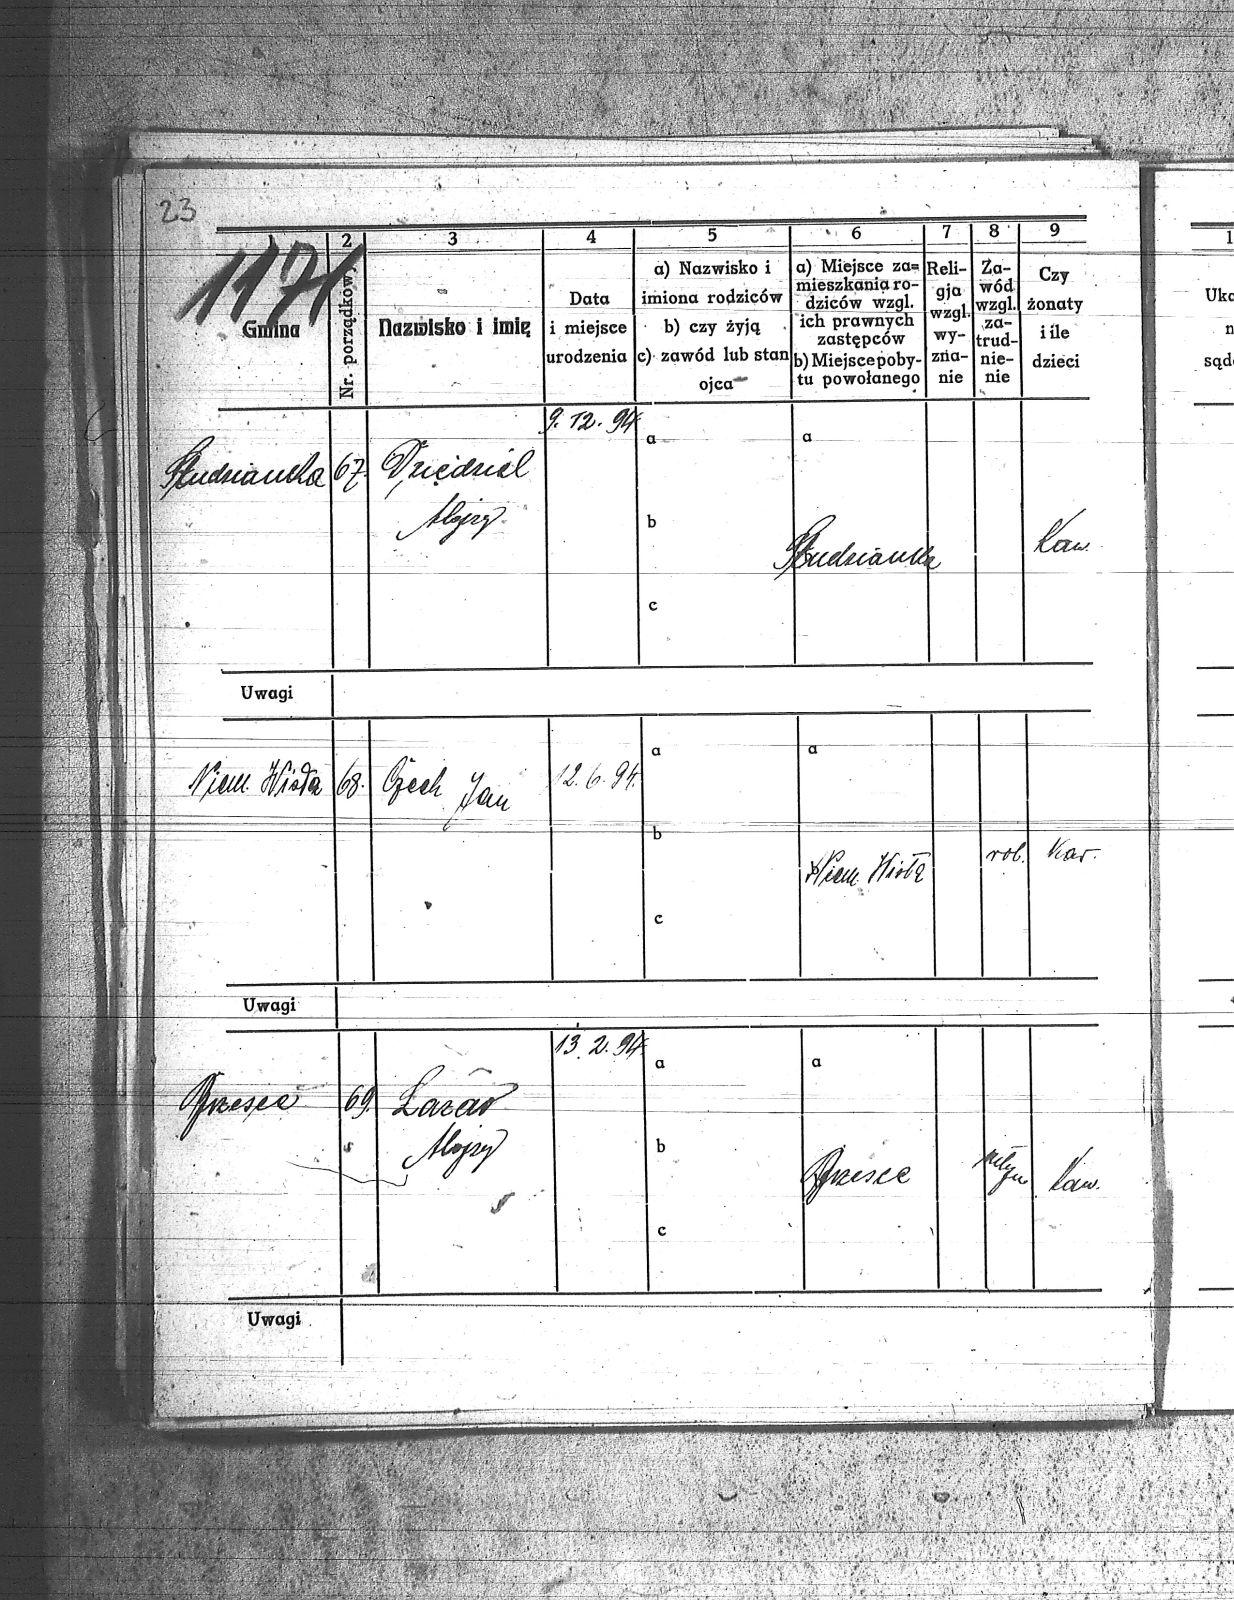 23
1171
2 3 4 5 6 7 8 9
Gmina
Nr. porządkowy
Nazwisko i imię
Data
i miejsce
urodzenia
a) Nazwisko i
imiona rodziców
b) czy żyją
c) zawód lub stan
ojca
a) Miejsce za=
mieszkania ro-
dziców wzgl.
ich prawnych
zastępców
b) Miejsce poby-
tu powołanego
Reli-
gja
wzgl.
wy-
zna-
nie
Za-
wód
wzgl.
za-
trud-
nie-
nie
Czy
żonaty
i ile
dzieci
9. 12. 94.
a a
Studzionka 67. Dziędziel
Alojzy
b
Studzionka Kaw.
c
Uwagi
a a
Niem. Wisła 68. Czech Jan 12. 6. 94.
b
Niem. Wisła rob. Kaw.
c
Uwagi
13. 2. 94.
a a
Brzesce 69. Lazar
Alojzy
b
Brzesce młyn. Kaw.
c
Uwagi
1
Uka
n
sąd